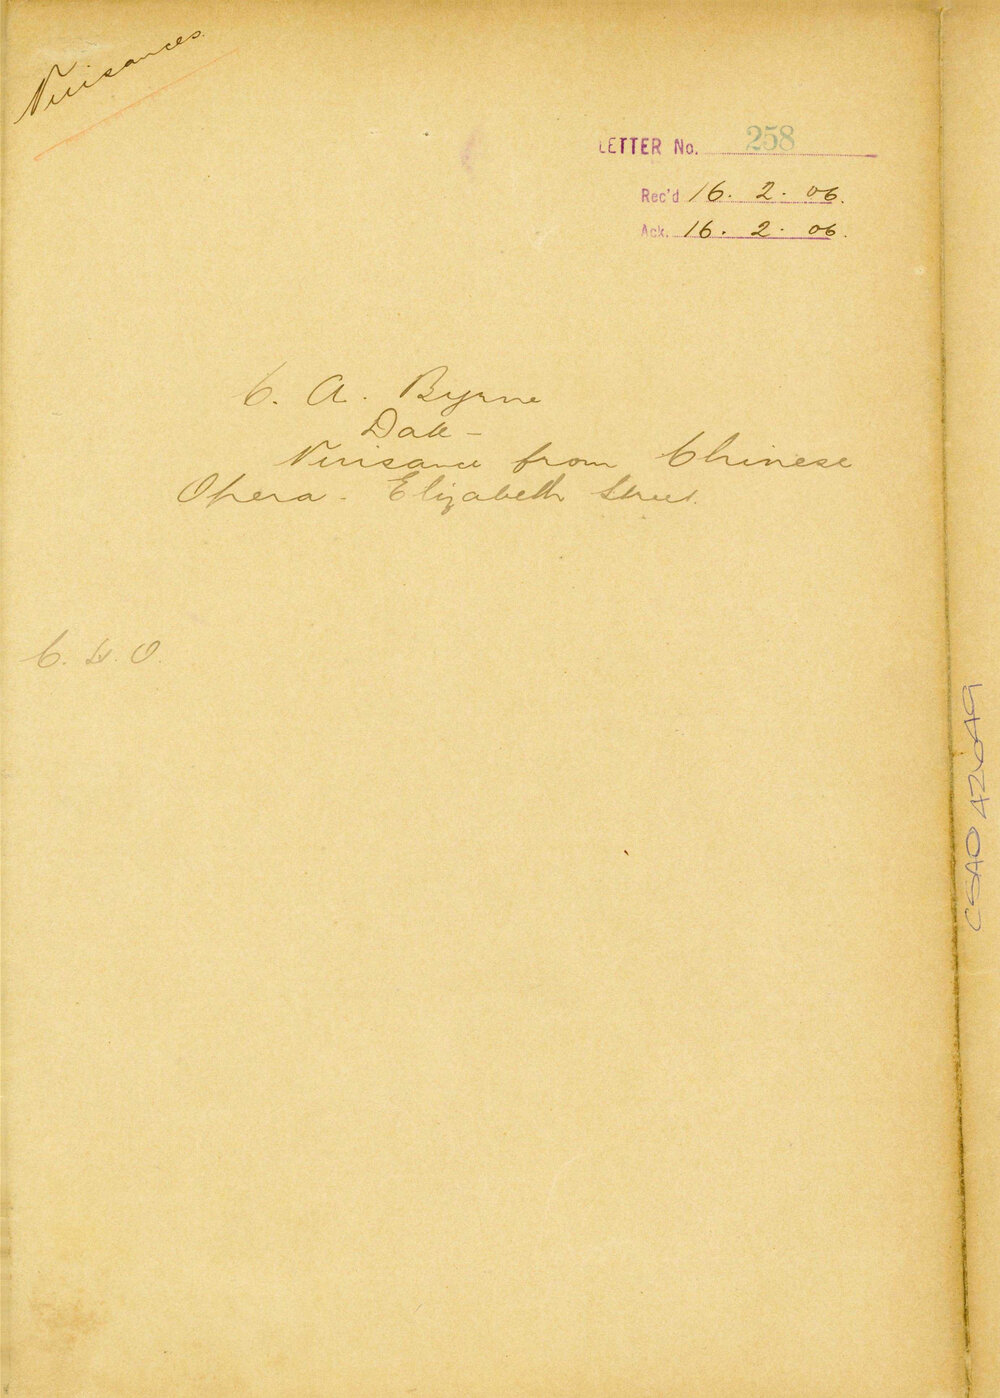 Nuisances.
LETTER No. 258
Rec'd 16. 2. 06.
Ack. 16. 2. 06.
C. A. Byrne
Date –
Nuisance from Chinese
Opera. Elizabeth Street.
C. H. O.